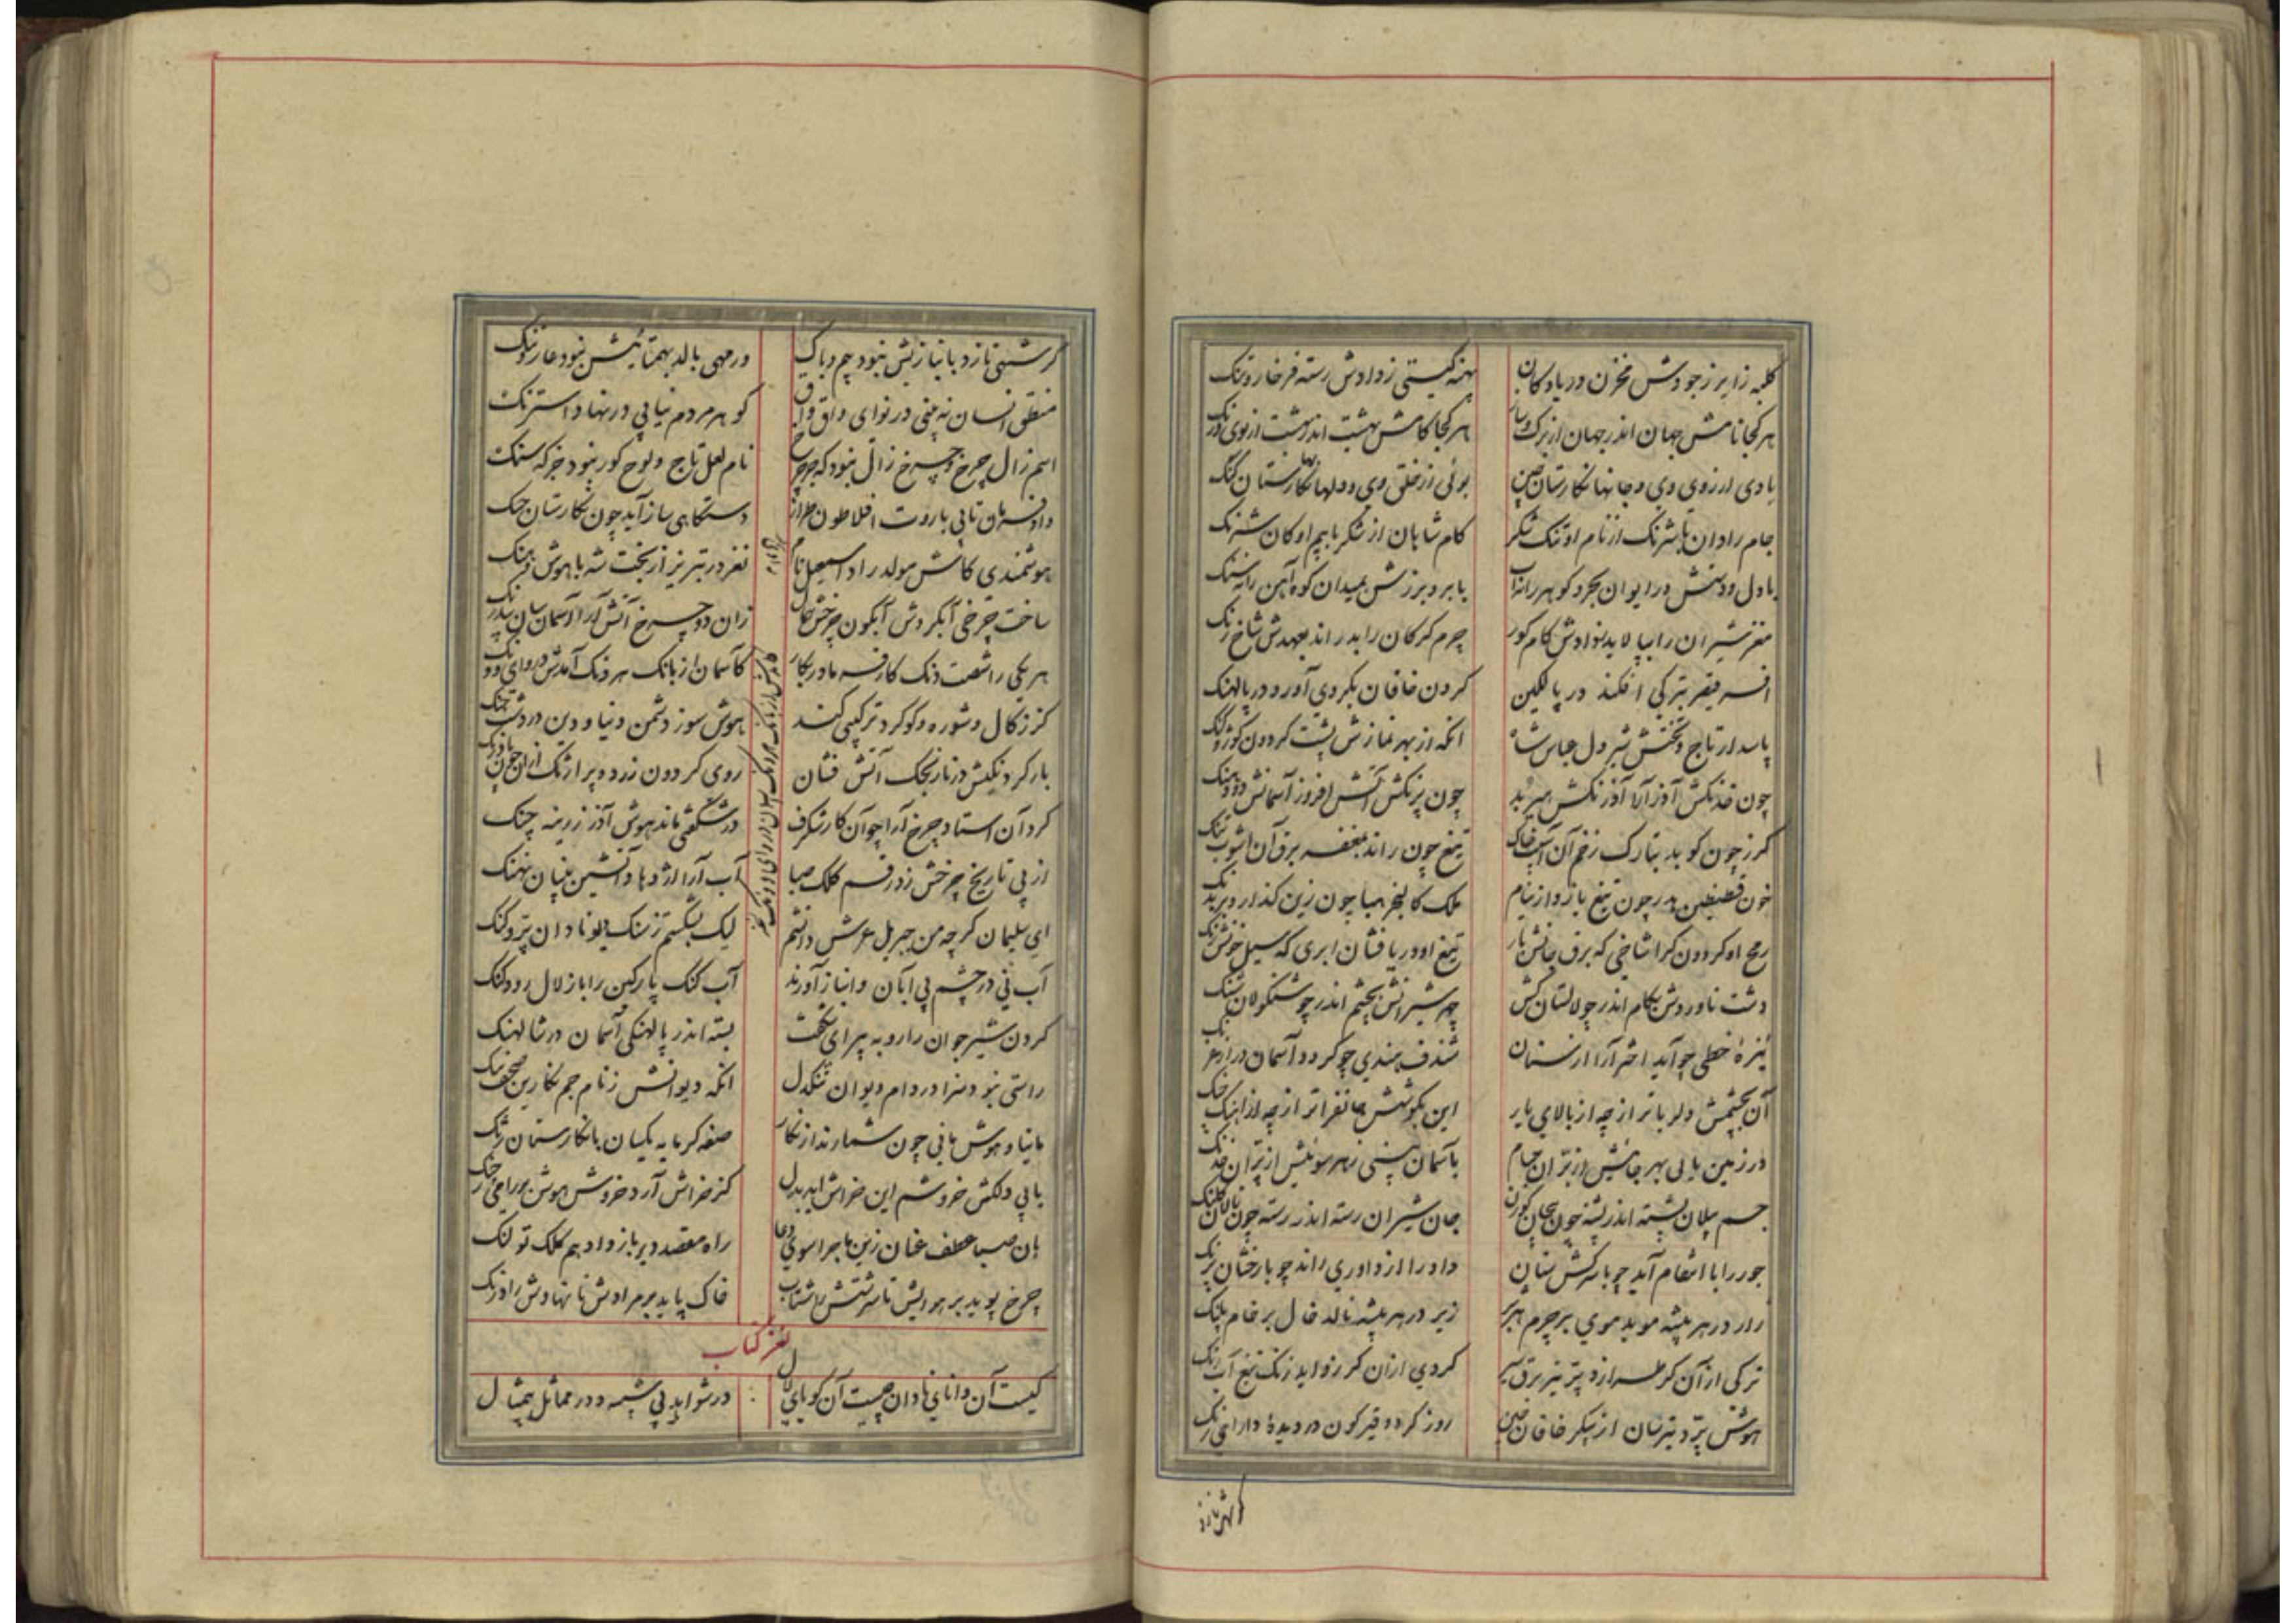 کلبه زایر ز جودش مخزن دریا و کان
پهنه گیتی ز دادش رسته فرخار و تنک
هر کجا نامش جهان اندر جهان از برک و ساز
هر کجا کامش بهشت اندر بهشت از بوی و رنک
یادی از روی وی و جانها نکارستان چین
بوئی از خلق وی و دلها نکارستان کنک
جام رادان با شرنک از نام او تنک شکر
کام شاهان از شکر با بیم او کان شرنک
با دل و دستش در ایوان بحر و کوهر را نه آب
با بر و برزش بمیدان کوه آهن را نه سنک
مغز شیران را بپالاید بنوادش کام کور
چرم کرکان را بدراند بعهدش شاخ رنک
افسر قیصر بترکی افکند در پالکین
کردن خاقان بکردی آورد در پالهنک
پاسدار تاج و تختش شیر دل عباس شاه
انکه از بهر نمازش پشت کردون کوژ و کنک
چون خدنکش آذر آرا آذرنکش هیربد
چون پرنکش آتش افروز آسمانش دود هنک
کرز چون کوبد بتارک زخم آن آسیب خاک
تیغ چون راند بمغفر برق آن آشوب تنک
خون قسطنطین بدر چون تیغ یازد از نیام
ملک کالنجر هبا چون زین کذارد بر بدنک
رمح او کردون کرا شاخی که برق جانش بار
تیغ او دریافشان ابری که سیل خونش زنک
دشت ناوردش بکام اندر چو لالستان کش
چهر شیرانش بچشم اندر چو شنکولان شنک
نیزهٔ خطی چو آید اختر آرا از سنان
شندف هندی چو کردد آسمان در از غرنک
آن بچشمش دلرباتر از چه از بالای یار
این بکوشش جانفزاتر از چه از آهنک چنک
در زمین یابی بهر جائیش از بتران جسام
بآسمان بینی ز هر سوئیش از پران خدنک
جسم پیلان پشته اندر پشته چون بیجان کوزن
جان شیران رسته اندر رسته چون نالان کلنک
جور را با انتقام آید چو با سرکش سنان
داد را از داوری راند چو با رخشان پرنک
زار در هر بیشه موید موی بر چرم هژبر
زیر در هر بیشه نالد خال بر خام پلنک
ترکی از آن کر طرازد پر تیر برق سیر
کردی از آن کر زداید زنک تیغ آب رنک
هوش پرد تیرسان از پیکر خاقان چین
روز کردد قیرکون در دیدهٔ دارای زنک
کر شهی نازد
کر شهی نازد بانبازیش نبود بیم و باک
ور مهی بالد بهمتائیش نبود عار و ننک
منطق انسان نه بینی در نوای واق واق
کوهر مردم نیابی در نهاد استرنک
اسم زال چرخ و چرخ زال نبود که چرخ
نام لعل تاج و لوح کور نبود جز که سنک
داد فرمان تا پی باروت افلاطون طراز
دستکاهی ساز آید چون نکارستان چنک
هوشمندی کامش مولد راد اسمعیل نام
نغز در تبریز از بخت شه با هوش و هنک
ساخت چرخی آبکردش آبکون چرخش مثال
زان دو چرخ آتش آرا آسمان سان بیدرنک
هر یکی را شصت دنک کارفرما در بکار
کآسمان از بانک هر دنک آمدش در وای ودنک
کز زکال و شوره و کوکرد ترکیبی کنند
هوش سوز دشمن دنیا و دین در دشت جنک
بار کردنکیش در نارنجک آتش فشان
روی کردون زرد و پر آژنک از آن چون بادرنک
کرد آن استاد چرخ آرا چو آن کار شکرف
در شکفتی ماند هوش آذر زرینه چنک
از پی تاریخ چرخش زد رقم کلک صبا
آب آرا اژدها و آتشین بنیان نهنک
ای سلیمان کرچه من جبریل عرشش دانشم
لیک بشکستم ز سنک دیو نادان پر و کنک
آب نی در چشم پی آبان و انباز آورند
آب کنک پارکین را با زلال رود کنک
کردن شیر جوان را روبه پیرای شکفت
بسته اندر پالهنکی آسمان در شالهنک
راستی نبود سزا در دام دیوان تنکدل
انکه دیوانش ز نام جم نکارین صحف تنک
مانیا و هوش مانی چون شمارند از نکار
صفه کرمابه یکسان با نکارستان تنک
یابی دلکش خروشم این خراش آید بدل
کز خراش آرد خروش هوش هر رامی ز چنک
هان صبا عطف عنان زین ماجرا سوی دعا
راه مقصد دیر باز و ادهم کلک تو لنک
چرخ پوید بر هوایش تا سرشتش را شتاب
خاک پاید بر مرادش تا نهادش را درنک
لغز کتاب
کیست آن دانای نادان چیست آن کویای لال
در شواهد بی شبیه و در مماثل بیمثال